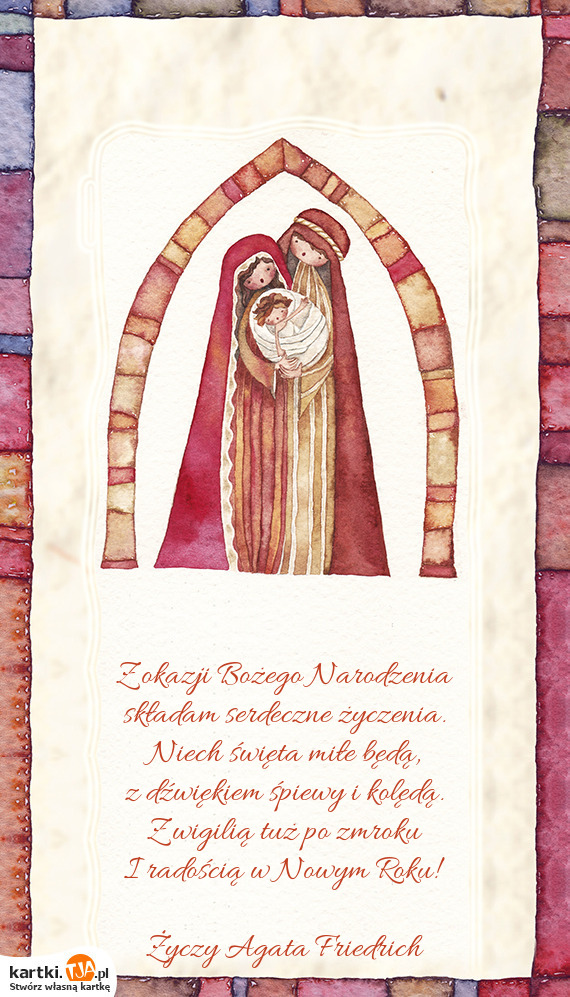 Z okazji Bożego Narodzenia
składam serdeczne życzenia.
Niech święta miłe będą,
z dźwiękiem śpiewy i kolędą.
Z wigilią tuż po zmroku
I radością w Nowym Roku!
Życzy Agata Friedrich
kartki.TJA.pl
Stwórz własną kartkę